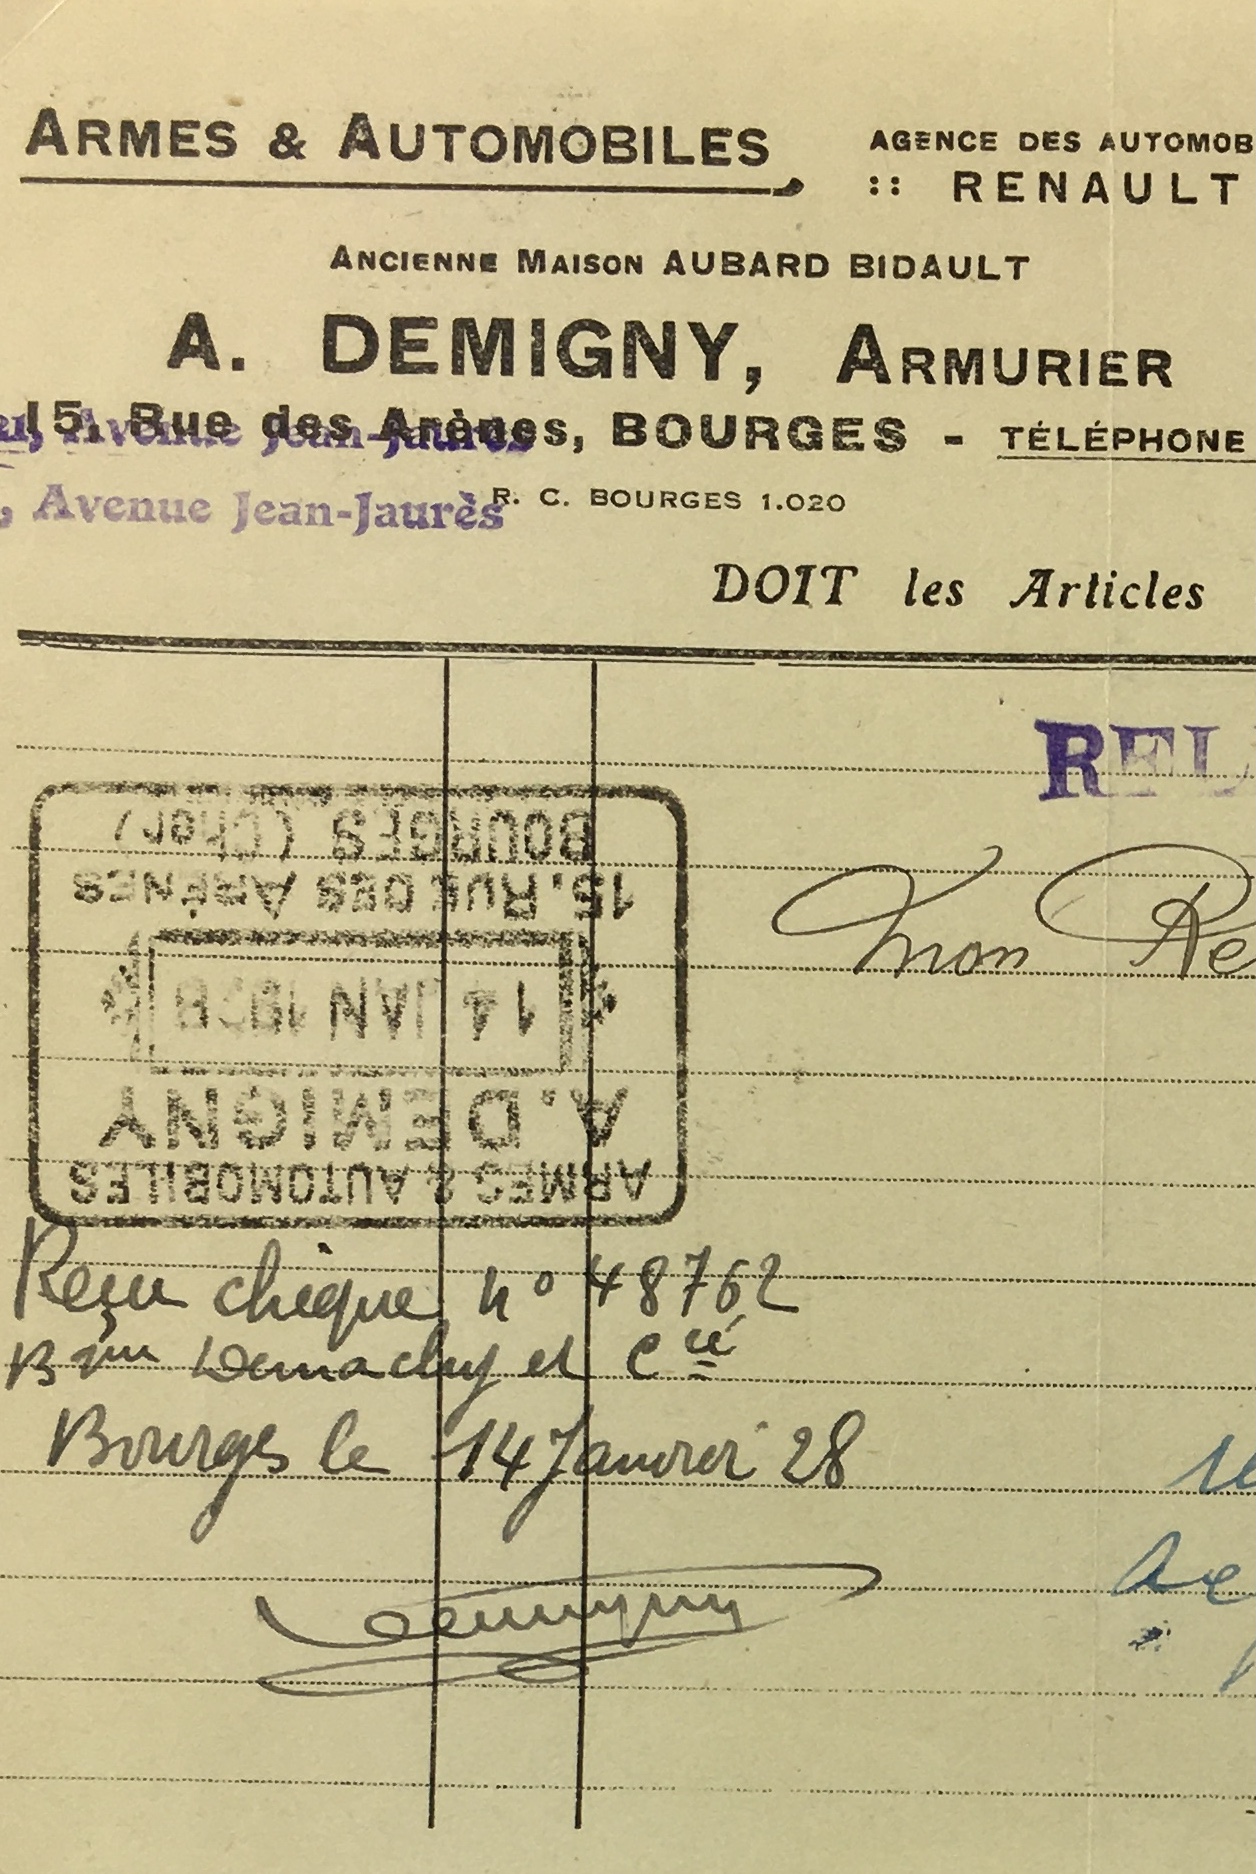 ARMES & AUTOMOBILES
AGENCE DES AUTOMOB
:: RENAULT
ANCIENNE MAISON AUBARD BIDAULT
A. DEMIGNY, ARMURIER
15, Rue des Arènes, BOURGES - TÉLÉPHONE
Avenue Jean-Jaurès
, Avenue Jean-Jaurès
R. C. BOURGES 1.020
DOIT les Articles
REL
Mon Re
ARMES & AUTOMOBILES
A. DEMIGNY
14 JAN 1928
15, RUE DES ARÈNES
BOURGES (Cher)
Reçu chèque n° 48762
Demachy et Cie
Bourges le 14 Janvier 28
Demigny